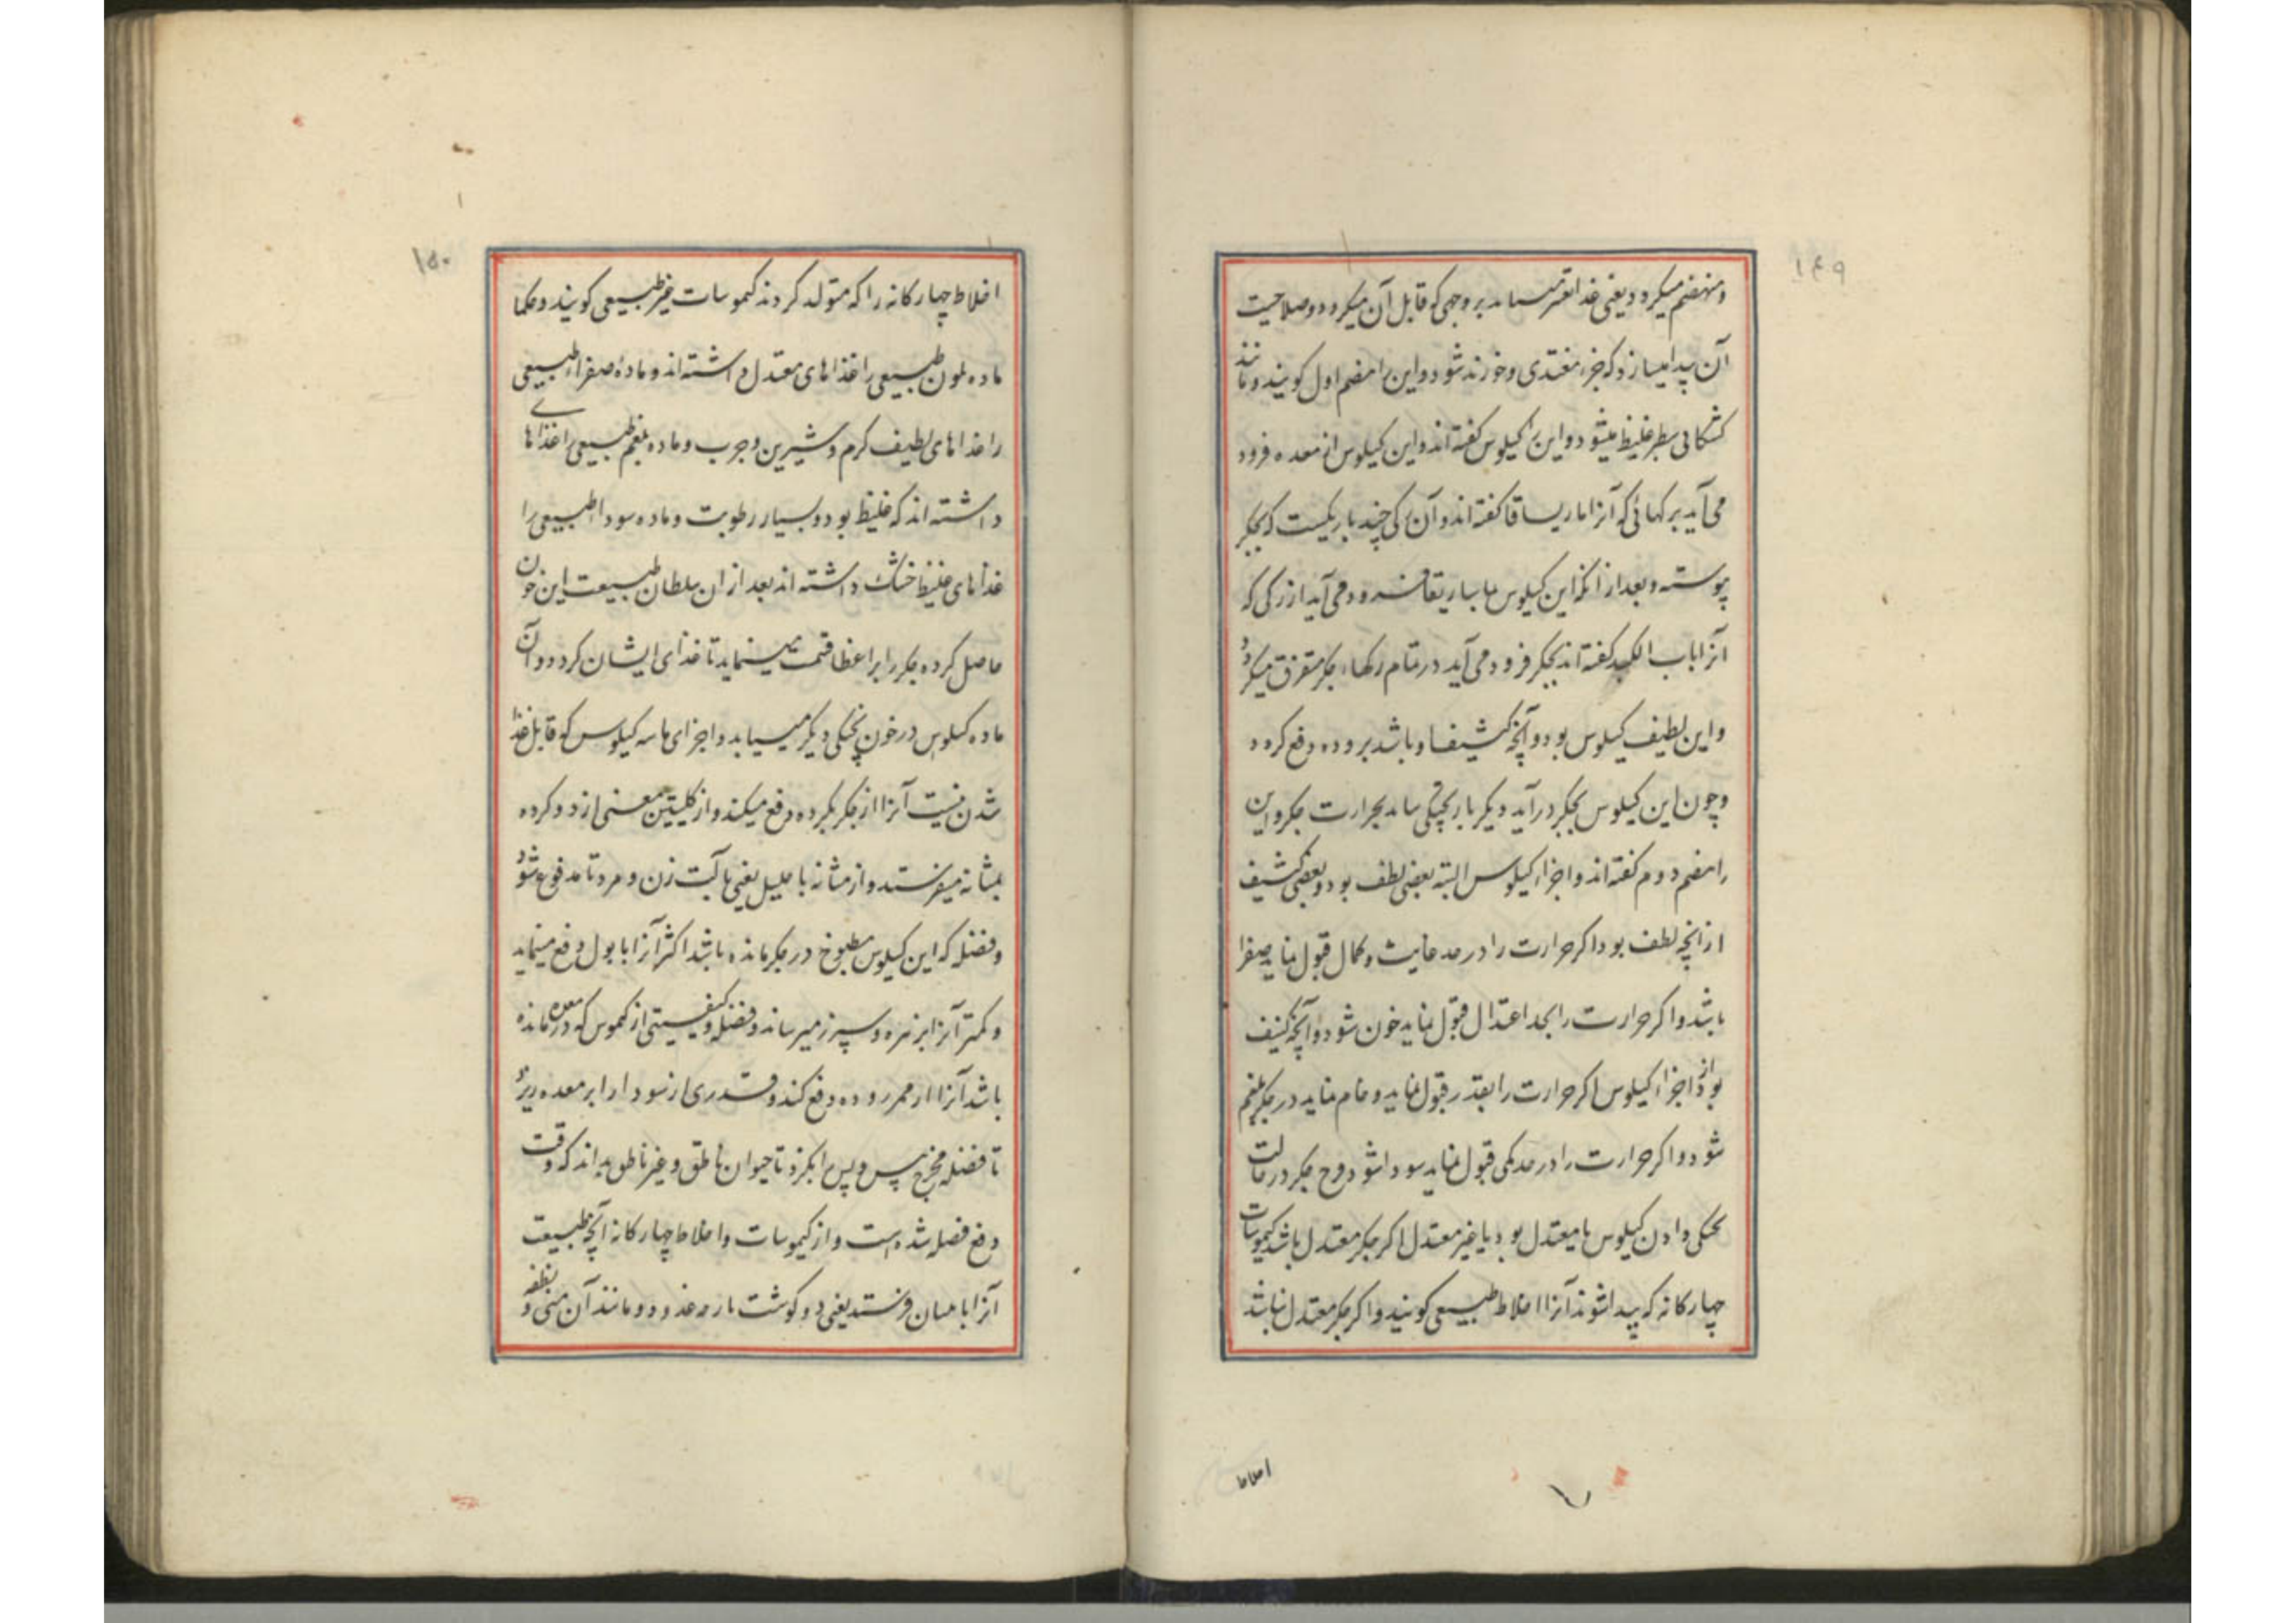 ۱۴۹
ومنهضم میکردد یعنی غذا بقدر میرساند بروجهی که قابل آن میکردد وصلاحیت
آن پیدا میسازد که جزء مغتذی وخورند شود واین را هضم اول کویند ومانند
کشکابی سطبر غلیظ میشود واین را کیلوس کفته اند واین کیلوس از معده فرود
می آید برکهائی که آنرا ماریساقا کفته اند وآن رکی چند باریکست که بجکر
پیوسته وبعد از آنکه این کیلوس بماساریقا فرود می آید از رکی که
آنرا باب الکبد کفته اند بجکر فرود می آید در تمام رکهاء جکر متفرق میکردد
واین لطیف کیلوس بود وآنچه کثیف او باشد بروده دفع کردد
وچون این کیلوس بجکر درآید دیکر بار پختکی یابد بحرارت جکر واین
را هضم دوم کفته اند واجزاء کیلوس البته بعضی لطف بود وبعضی کثیف
ازانچه لطف بود اکر حرارت را در حد غایت وکمال قبول نماید صفرا
باشد واکر حرارت را بحد اعتدال قبول نماید خون شود وآنچه کثیف
بود از اجزاء کیلوس اکر حرارت را بقدر قبول نماید وخام نماید در جکر بلغم
شود واکر حرارت را در حد کمی قبول نماید سودا شود وح جکر در حالت
پختکی دادن کیلوس یا معتدل بود یا غیر معتدل اکر جکر معتدل باشد کیموسات
چهارکانه که پیدا شوند آنرا اخلاط طبیعی کویند واکر جکر معتدل نباشد
اخلاط
۱۵۰
اخلاط چهارکانه را که متولد کردند کیموسات غیر طبیعی کویند وحکما
ماده خون طبیعی را غذاهای معتدل داشته اند ومادۀ صفراء طبیعی
را غذاهای لطیف کرم وشیرین وچرب وماده بلغم طبیعی را غذاهای
داشته اند که غلیظ بود وبسیار رطوبت وماده سوداء طبیعی را
غذاهای غلیظ خشک داشته اند بعد از ان سلطان طبیعت این خون
حاصل کرده جکر را بر اعضا قسمت مینماید تا غذای ایشان کردد وآن
ماده کیلوس در خون پختکی دیکر مییابد واجزای کیلوس که قابل غذا
شدن نیست آنرا از جکر بکرده دفع میکند واز کلیتین معنی از دو کرده
بمثانه میفرستد واز مثانه باحلیل یعنی بآلت زن ومرد تا مدفوع شود
وفضله که این کیلوس مطبوخ در جکر مانده باشد اکثر آنرا با بول دفع مینماید
وکمتر آنرا بر زهره وسپرز میرساند وفضله وکیفیتی از کیموس که در معده مانده
باشد آنرا از ممر روده دفع کند وقدری از سودا را بر معده ریزد
تا فضله مخرج پس وپیش را بکزد تا حیوان ناطق وغیر ناطق بداند که وقت
دفع فضله شده است واز کیموسات واخلاط چهارکانه آنچه طبیعت
آنرا بانثیان فرستد یعنی دو کوشت پاره غدود ومانند آن منی ونطفه